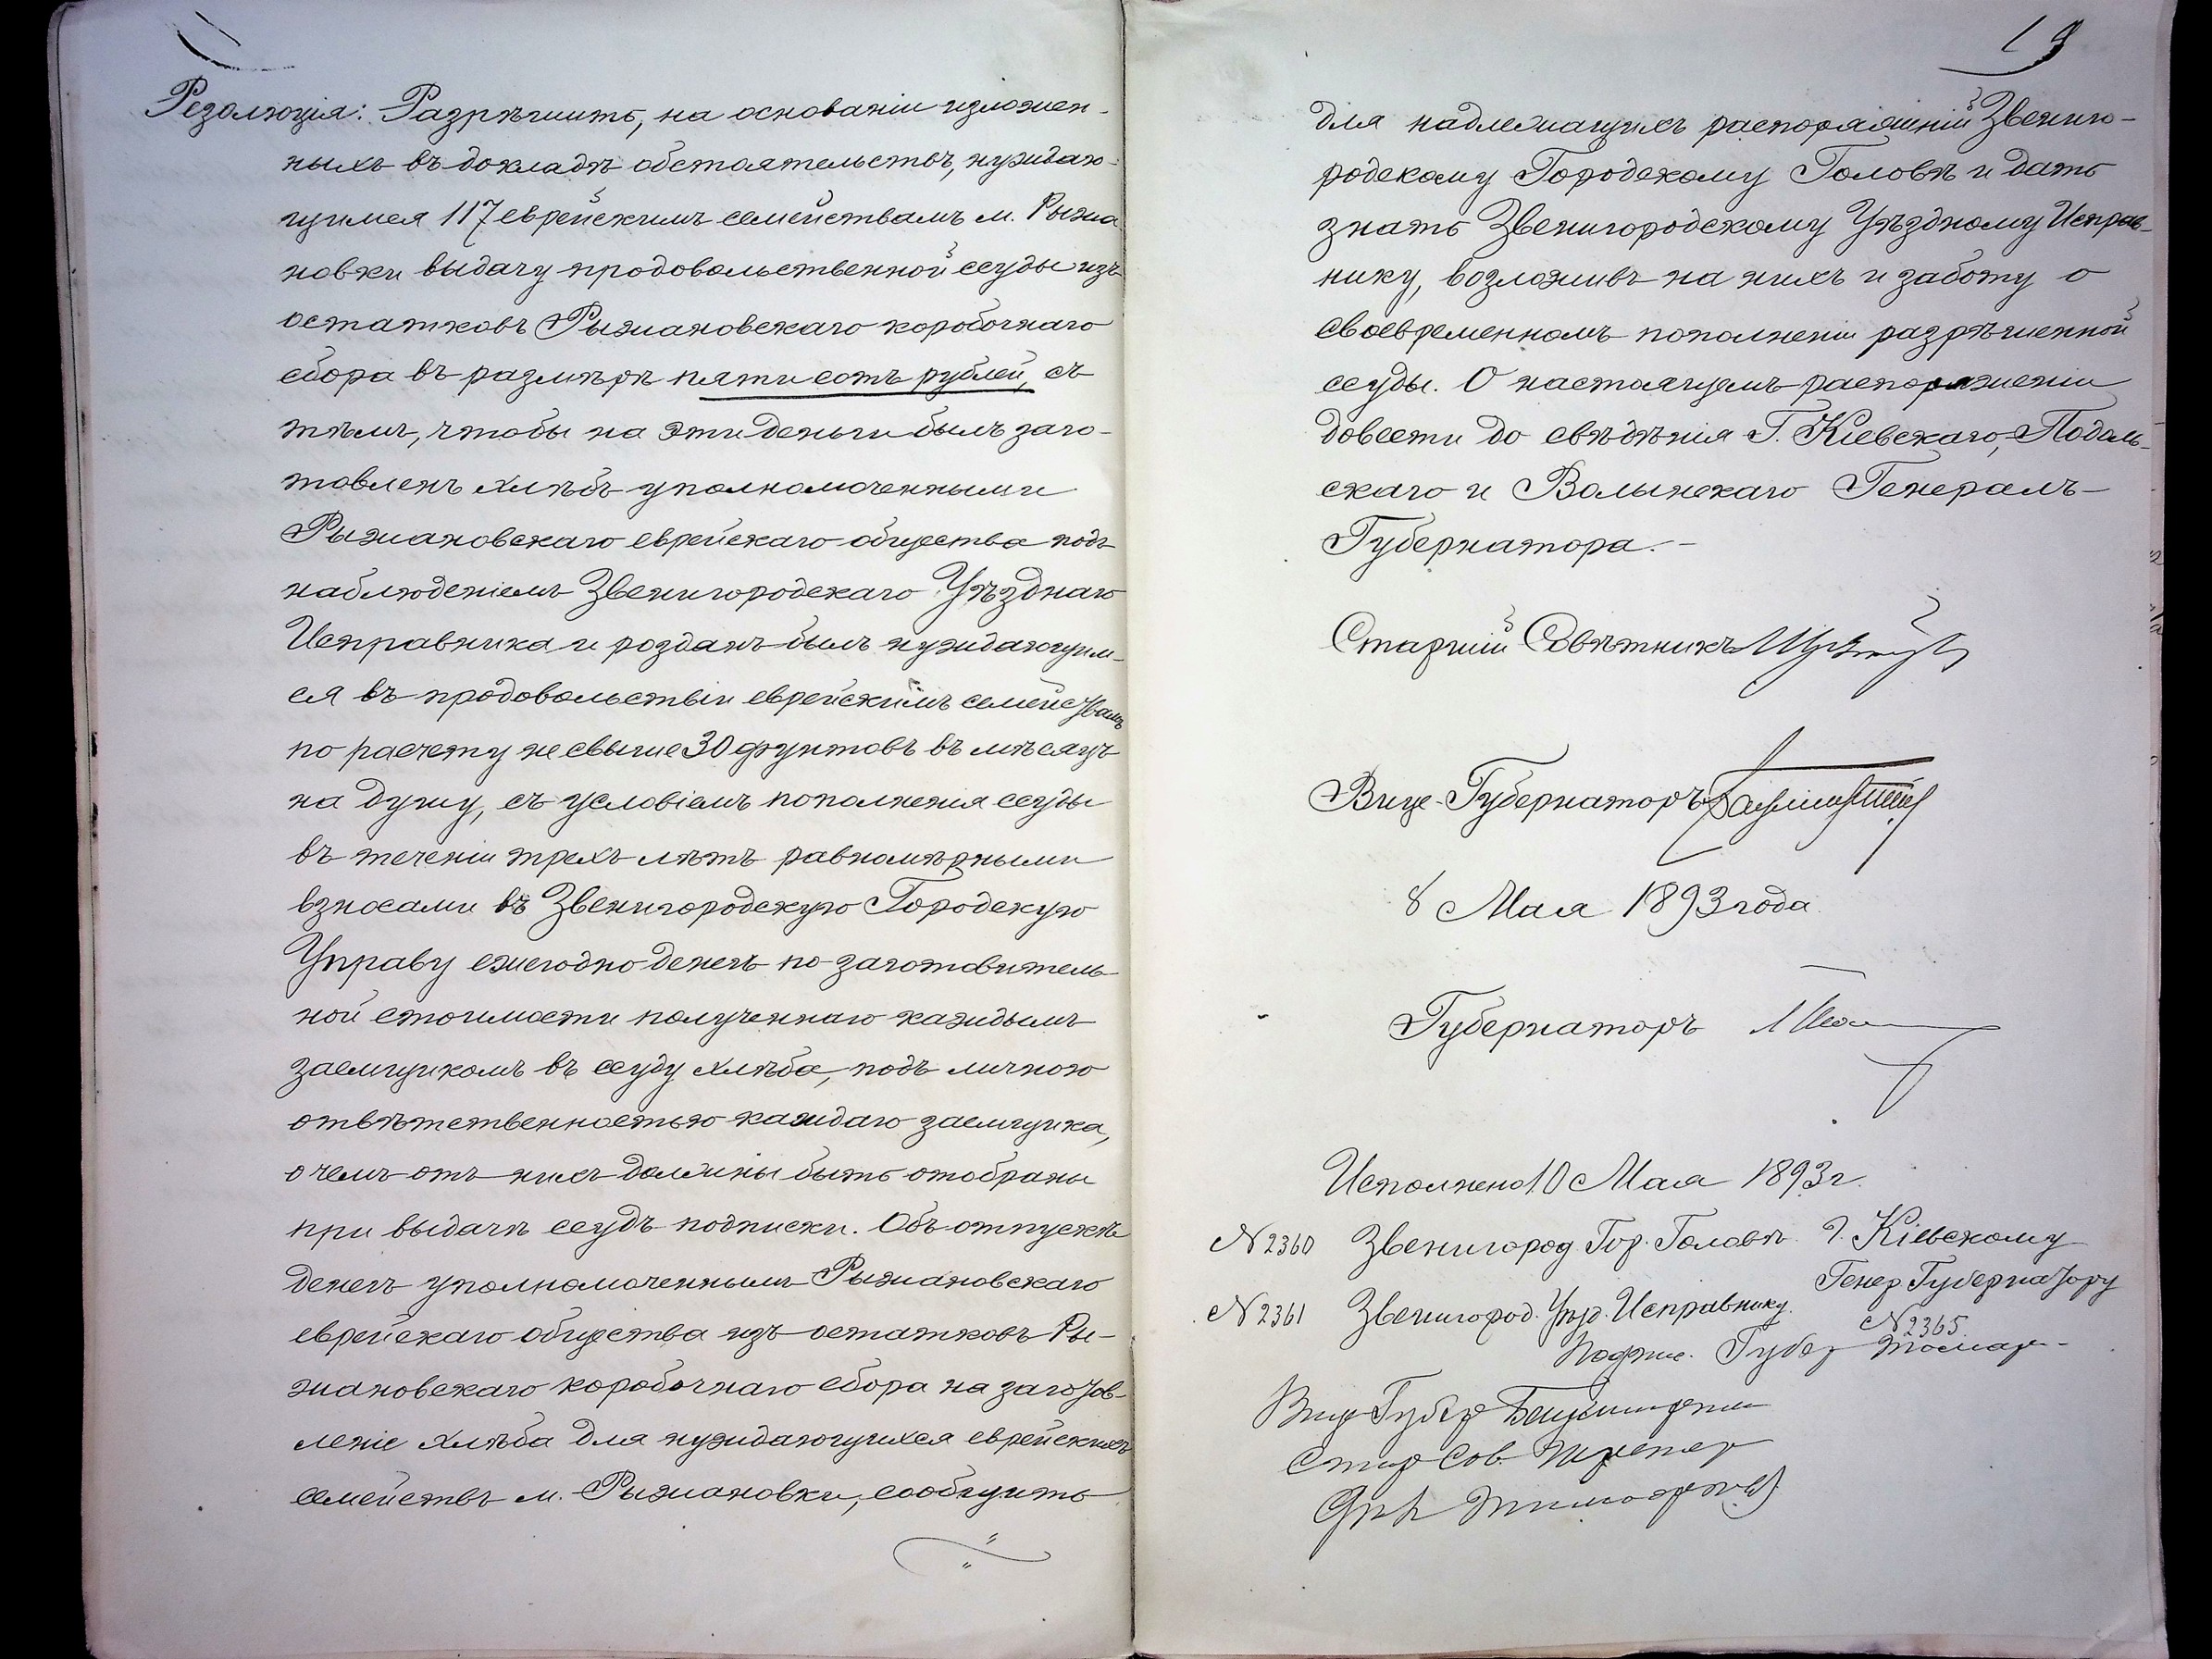 19
Резолюція: Разрѣшить, на основаніи изложен-
ныхъ въ докладѣ обстоятельствъ, нуждаю-
щимся 117 еврейскимъ семействамъ м. Рыжа
новки выдачу продовольственной ссуды изъ
остатковъ Рыжановскаго коробочнаго
сбора въ размѣрѣ пяти сотъ рублей, съ
тѣмъ, чтобы на эти деньги былъ заго-
товленъ хлѣбъ уполномоченными
Рыжановскаго еврейскаго общества подъ
наблюденіемъ Звенигородскаго Уѣзднаго
Исправника и розданъ былъ нуждающим-
ся въ продовольствіи еврейскимъ семействамъ
по расчету не свыше 30 фунтовъ въ мѣсяцъ
на душу, съ условіемъ пополненія ссуды
въ теченіи трехъ лѣтъ равномѣрными
взносами въ Звенигородскую Городскую
Управу ежегодно денегъ по заготовитель
ной стоимости полученнаго каждымъ
заемщикомъ въ ссуду хлѣба, подъ личною
отвѣтственностью каждаго заемщика,
о чемъ отъ нихъ должны быть отобраны
при выдачѣ ссудъ подписки. Объ отпускѣ
денегъ уполномоченнымъ Рыжановскаго
еврейскаго общества изъ остатковъ Ры-
жановскаго коробочнаго сбора на заготов-
леніе хлѣба для нуждающихся еврейскихъ
семействъ м. Рыжановки, сообщить
для надлежащихъ распоряженій Звениго-
родскому Городскому Головѣ и дать
знать Звенигородскому Уѣздному Исправ-
нику, возложивъ на нихъ и заботу о
своевременномъ пополненіи разрѣшенной
ссуды. О настоящемъ распоряженіи
довести до свѣдѣнія Г. Кіевскаго, Подоль-
скаго и Волынскаго Генералъ-
Губернатора.-
Старшій Совѣтникъ
Вице-Губернаторъ
8 Мая 1893 года
Губернаторъ
Исполнено 10 Мая 1893 г.
№ 2360 Звенигород. Гор. Головѣ. Г. Кіевскому
Генер. Губернатору
№ 2361 Звенигород. Уѣзд. Исправнику.
№ 2365
Подпис. Губер Томар-
Вице Губер
Стар Сов.